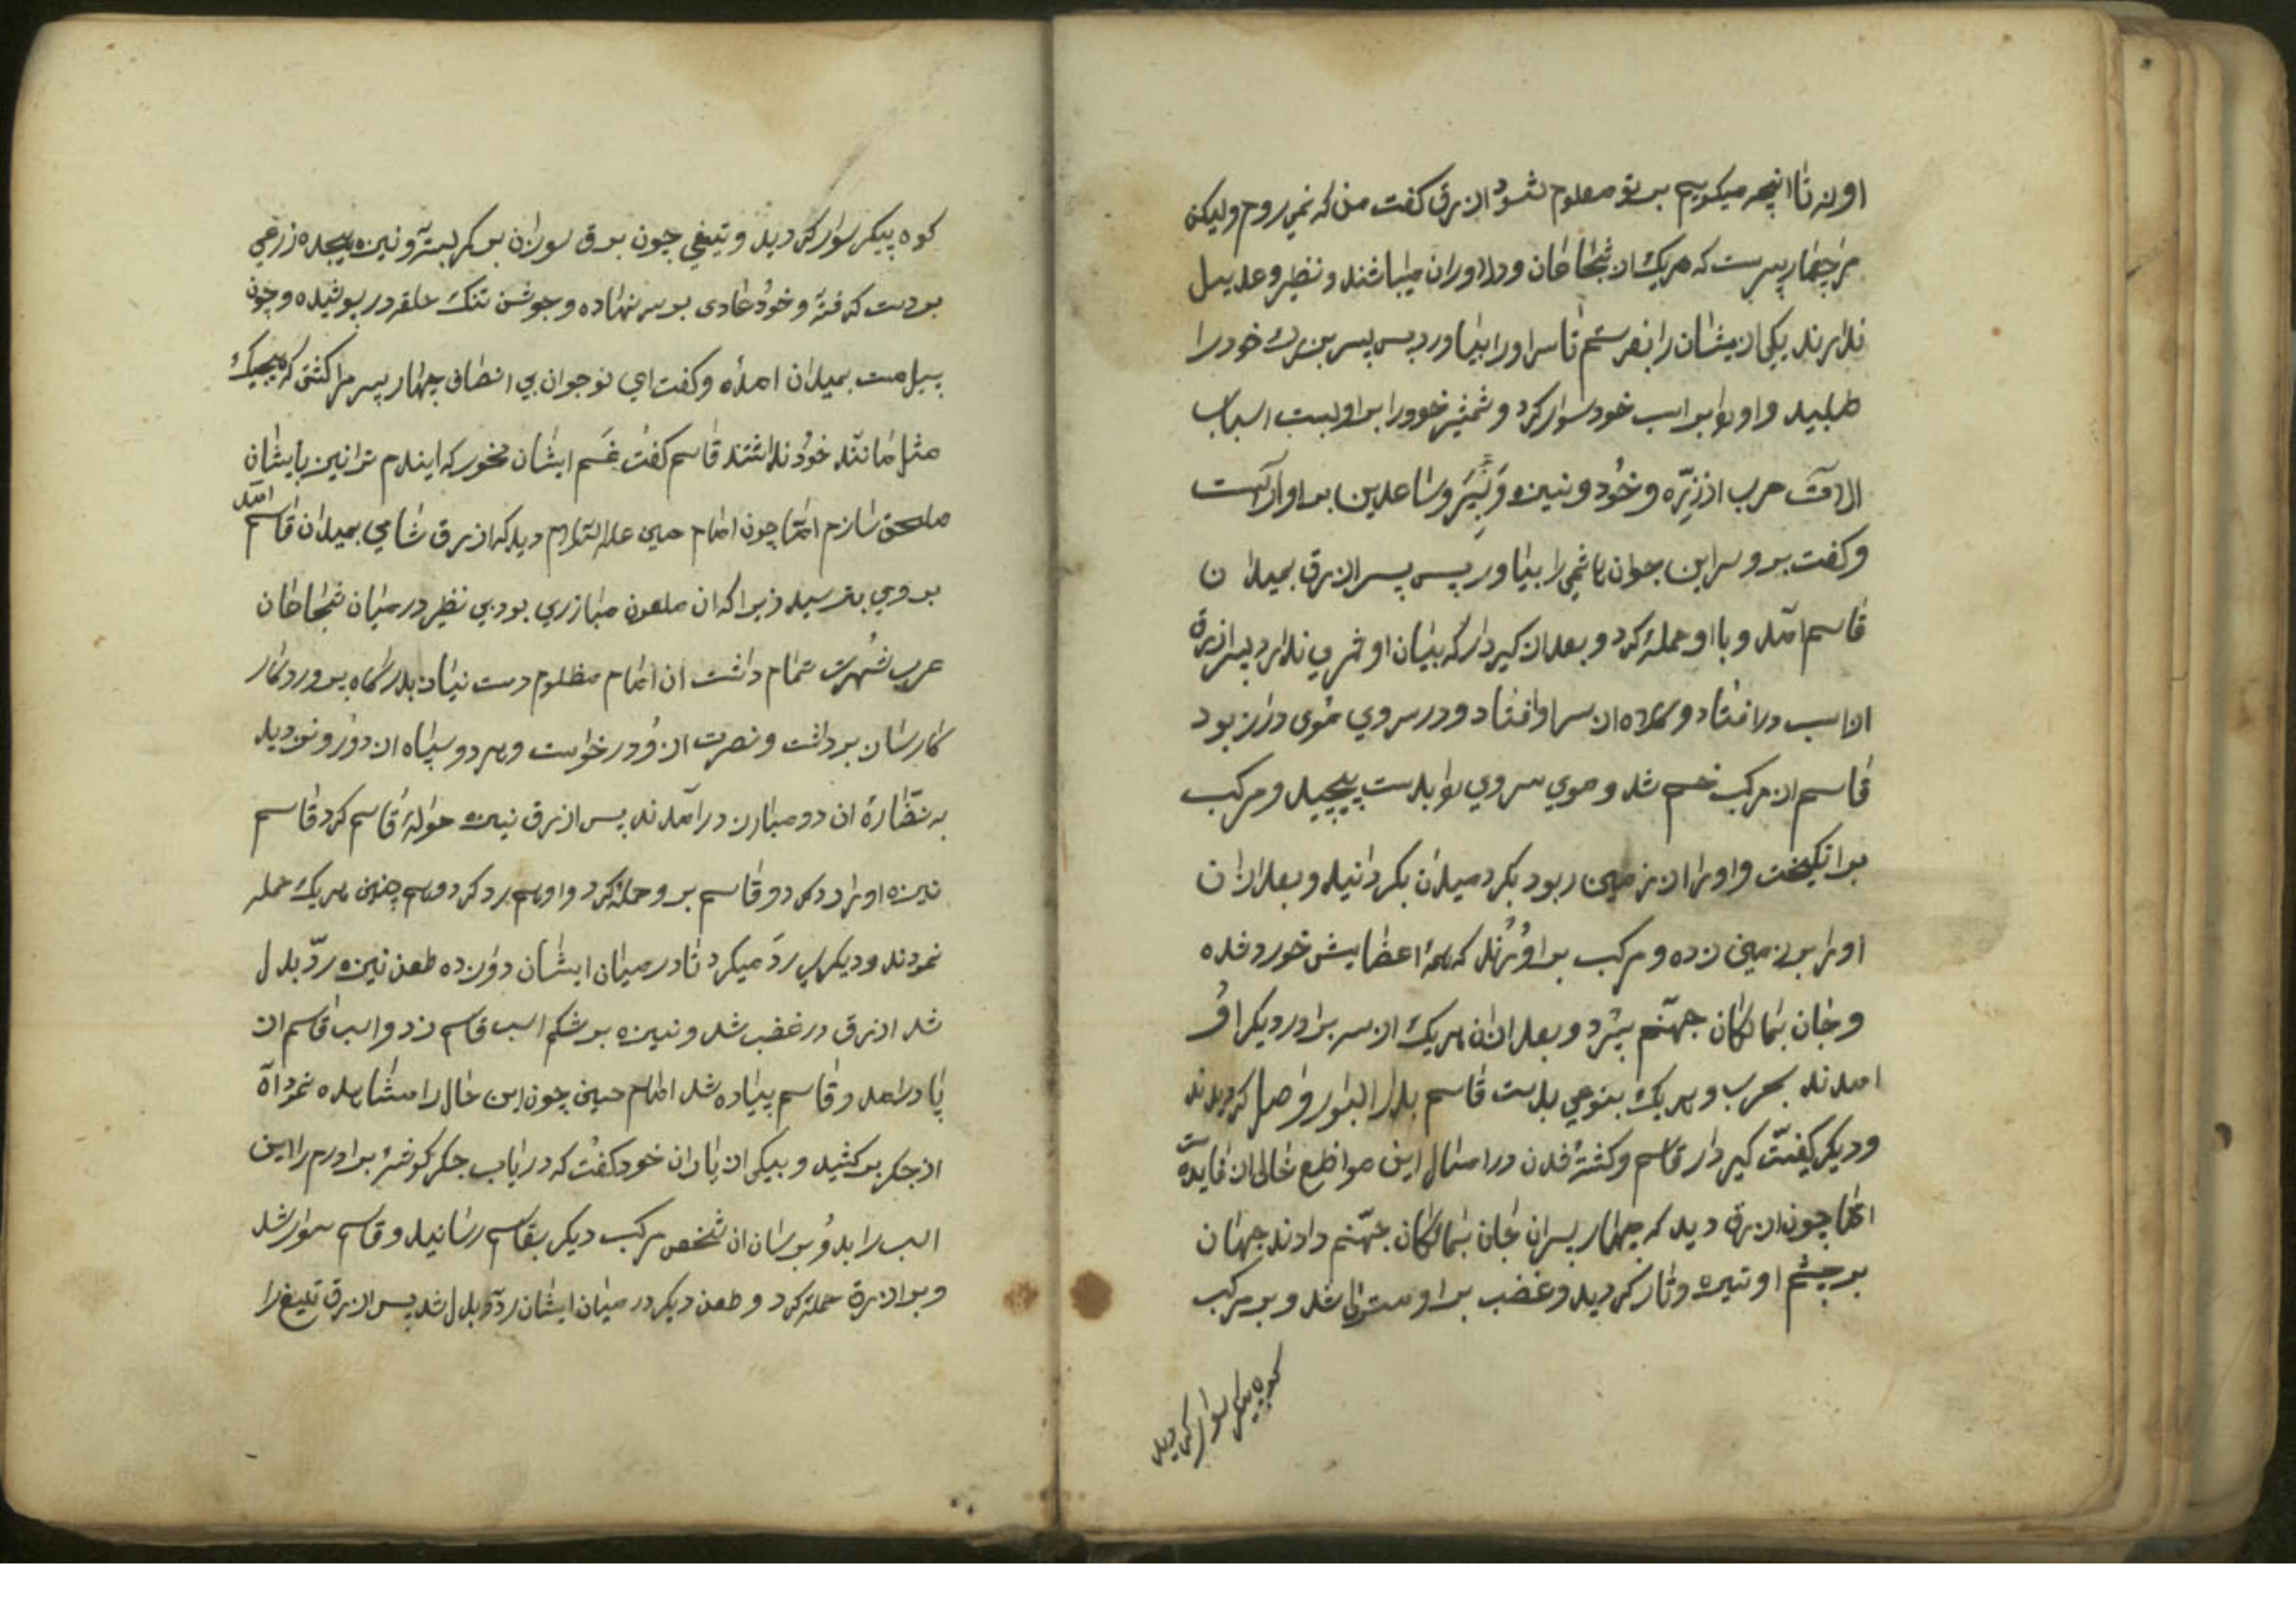 اورند تا انچه میکویم بر تو معلوم شود ازرق کفت من که نمی روم ولیکن
مرا چهار پسرست که هریک از شجاعان و دلاوران میباشند و نظیر و عدیل
ندارند یکی از یشان را بفرستم تا سر اورا بیاورد پس پسر بزرک خود را
طلبید و اورا بر اسب خود سوار کرد و شمشیر خود را بر او بست اسباب
الات حرب از زره و خود و نیزه و سپر و ساعدین بر او آراست
و کفت برو سر این جوان هاشمی را بیاور پس پسر ازرق بمیدان
قاسم امد و با او حمله کرد و بعد از کیر دار که بیان او ثمری ندارد پسر ازرق
از اسب در افتاد و کلاه از سر او افتاد و در سر وی موی دراز بود
قاسم از مرکب خم شد و موی سر وی را بدست پیچید و مرکب
برانکیخت و اورا از زمین ربود بکرد میدان بکردانید و بعد از ان
اورا بر زمین زده و مرکب بر او راند که همه اعضایش خورد شده
و جان بمالکان جهنم سپرد و بعد از ان هریک از سه برادر دیکر او
امدند بحرب و هریک بنوعی بدست قاسم بدار البوار واصل کردیدند
و دیکر کیفیت کیر دار قاسم و کشته شدن در امثال این مواضع خالی از فایده است
اما چون ازرق دید که چهار پسران جان بمالکان جهنم دادند جهان
بر چشم او تیره و تار کردید و غضب بر او مستولی شد و بر مرکب
کوه پیکر سوار کردید
کوه پیکر سوار کردید و تیغی چون برق سوزان بر کمر بسته و نیزه هیجده زرعی
بر دست کرفته و خود عادی بر سر نهاده و جوشن تنک حلقه در پوشیده و چون
پیل مست بمیدان امده و کفت ای نوجوان بی انصاف چهار پسر مرا کشتی که هیچیک
مثل و مانند خود نداشتند قاسم کفت غم ایشان مخور که ایندم ترا نیز بایشان
ملحق سازم اما چون امام حسین علیه السلام دید که ازرق شامی بمیدان قاسم امد
بر وی بترسید زیرا که ان ملعون مبارزی بود بی نظیر در میان شجاعان
عرب شهرت تمام داشت ان امام مظلوم دست نیاز بدرکاه پروردکار
کارساز برداشت و نصرت از و درخواست و هر دو سپاه از دور و نزدید
به نظارهٔ ان دو مبارز در آمدند پس ازرق نیزه حواله قاسم کرد قاسم
نیزه اورا رد کرد و قاسم برو حمله کرد و او هم رد کرد و هم چنین هریک حمله
نمودند و دیکری رد میکرد تا در میان ایشان دوازده طعن نیزه رد بدل
شد ازرق در غضب شد و نیزه بر شکم اسب قاسم زد و اسب قاسم از
پا در امد و قاسم پیاده شد امام حسین چون این حال را مشاهده نمود آه
از جکر برکشید و بیکی از یاران خود کفت که دریاب جکر کوشهٔ برادرم را این
اسب را بدو برسان ان شخص مرکب دیکر بقاسم رسانید و قاسم سوار شد
و بر ازرق حمله کرد و طعن دیکر در میان ایشان رد و بدل شد پس ازرق تیغ را